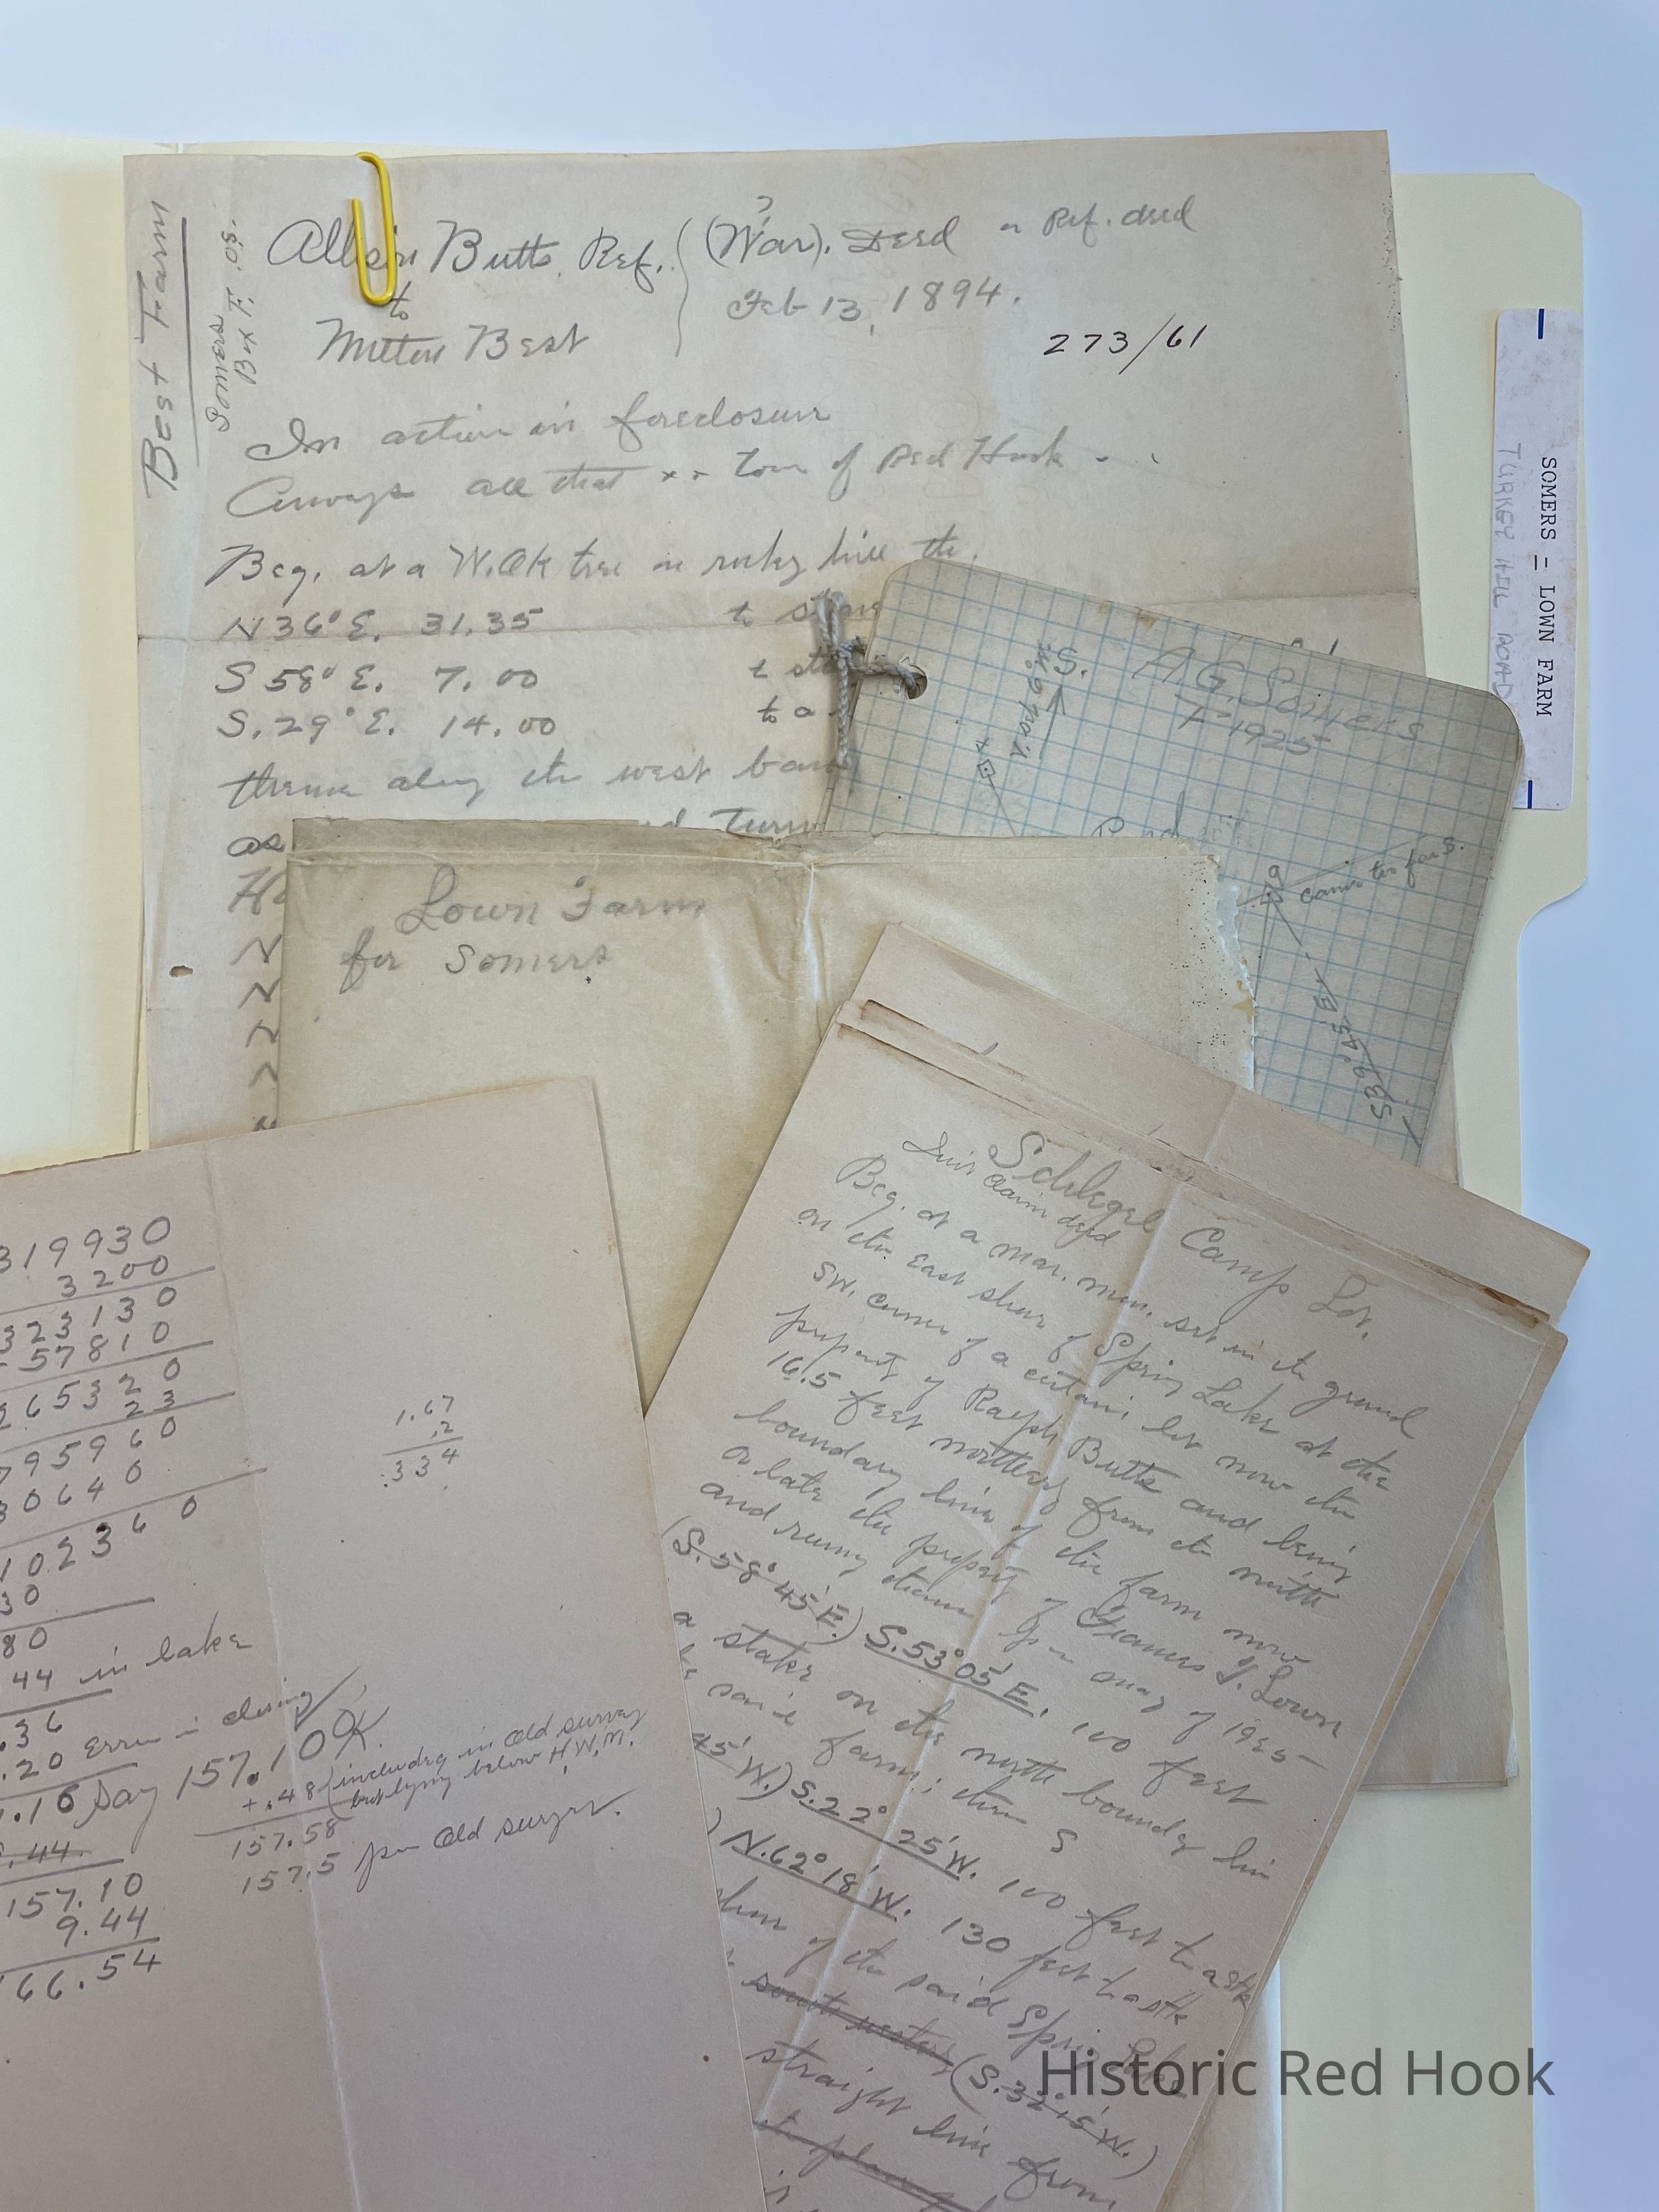 Best Farm
Somers
Box T. '08.
Allison Butts, Ref.
to
Milton Best
?
(War). Deed or Ref. deed
Feb 13, 1894.
273/61
In action in foreclosure
Conveys all that xx town of Red Hook - -
Beg. at a W. Oak tree on rocky hill th.
N 36° E. 31.35 t stone
S 58° E. 7.00 t st
S. 29° E. 14.00 to a
thence along the west ban
as
Turn
SOMERS - LOWN FARM
TURKEY HILL ROAD
A.G. Somers
1925
S.
Lown Farm
for Somers
Schlegel Camp Lot.
Quit Claim deed
Beg. at a mar. mon. set in the ground
on the East shore of Spring Lake at the
SW. corner of a certain lot now the
property of Ralph Butts and being
16.5 feet northerly from the north
boundary line of the farm now
or late the property of Francis J. Lown
and runng thence as of 1925
(S. 58° 45' E.) S. 53° 05' E. 100 feet
a stake on the north boundy line
said farm; thence S
45' W.) S. 22° 25' W. 100 feet to a stk
) N. 62° 18' W. 130 feet to a stk
shore of the said Spring Lake
south westerly (S. 32° 15' W.)
straight line from
319930
3200
323130
57810
265320
23
795960
30640
102360
30
80
44 in lake
.36
.20 Error in closing
.16 Say 157.10 OK.
+.48 (includng in Old survey
but lying below H.W.M.
157.58
157.5 per Old survey.
.44
157.10
9.44
166.54
1.67
.2
.334
Historic Red Hook